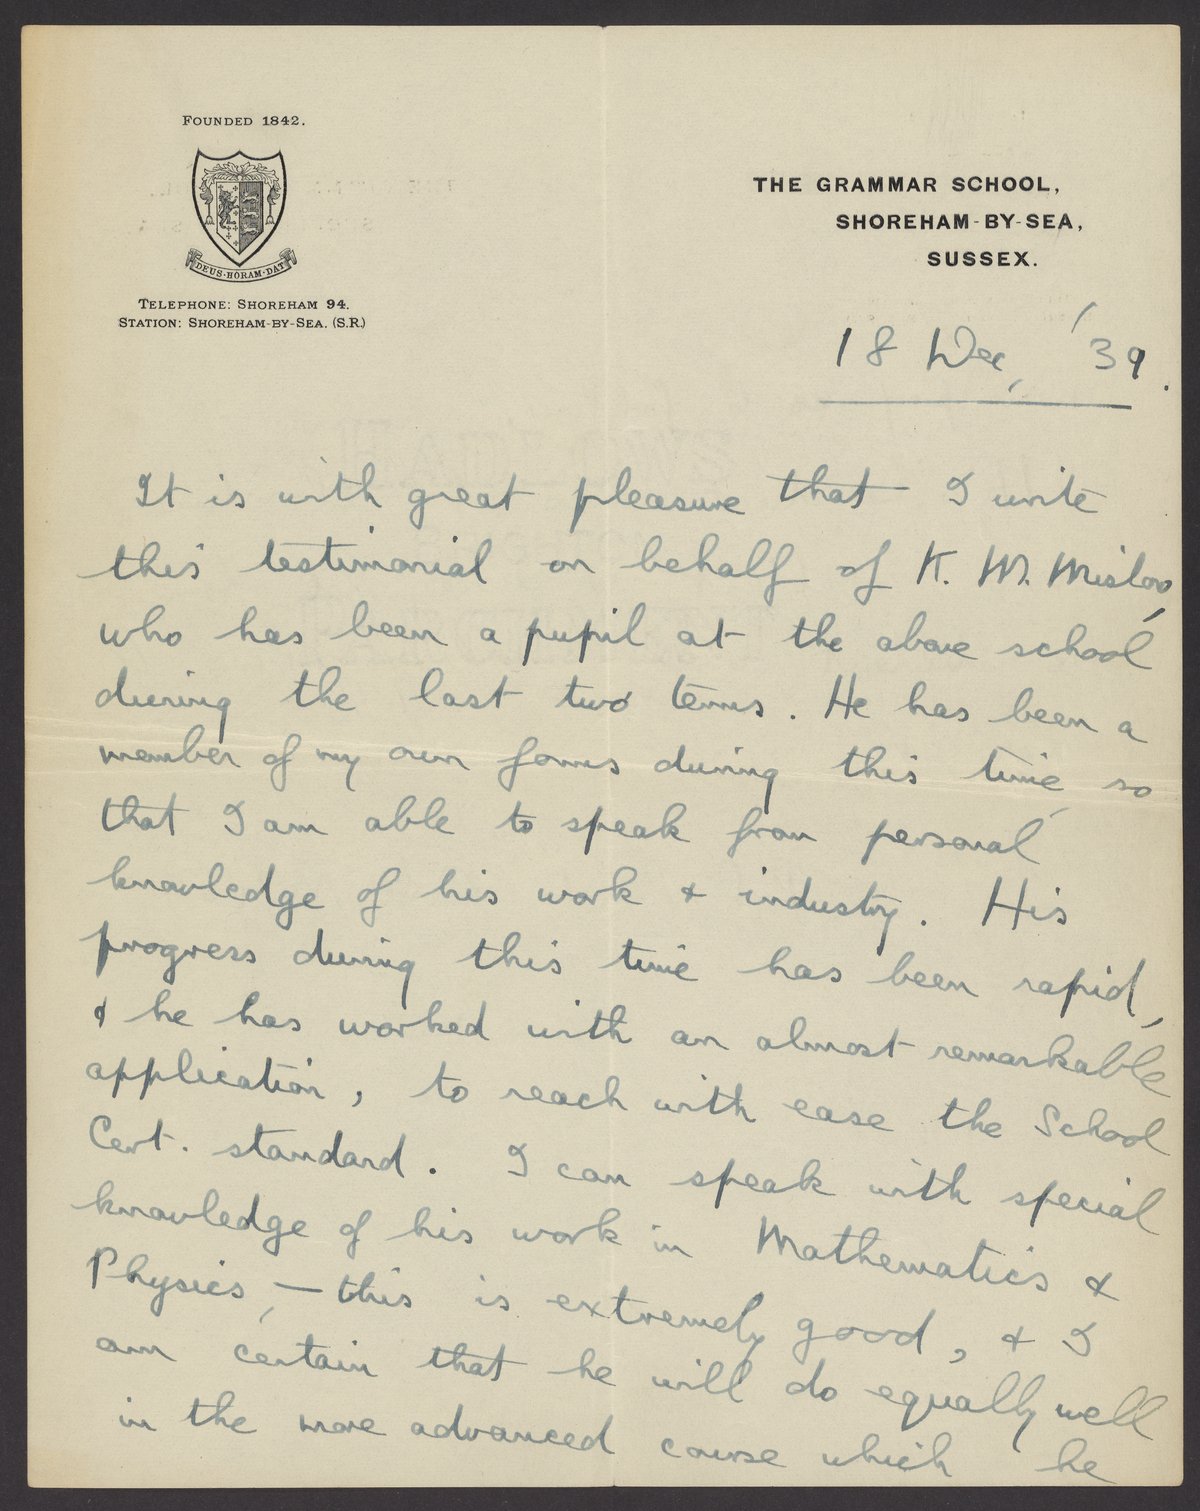 FOUNDED 1842.
DEUS·HORAM·DAT
TELEPHONE: SHOREHAM 94.
STATION: SHOREHAM-BY-SEA. (S.R.)
THE GRAMMAR SCHOOL,
SHOREHAM-BY-SEA,
SUSSEX.
18 Dec, '39.
It is with great pleasure that I write
this testimonial on behalf of K. M. Mislow,
who has been a pupil at the above school
during the last two terms. He has been a
member of my own forms during this time, so
that I am able to speak from personal
knowledge of his work & industry. His
progress during this time has been rapid,
& he has worked with an almost remarkable
application, to reach with ease the School
Cert. standard. I can speak with special
knowledge of his work in Mathematics &
Physics, — this is extremely good, & I
am certain that he will do equally well
in the more advanced course which he